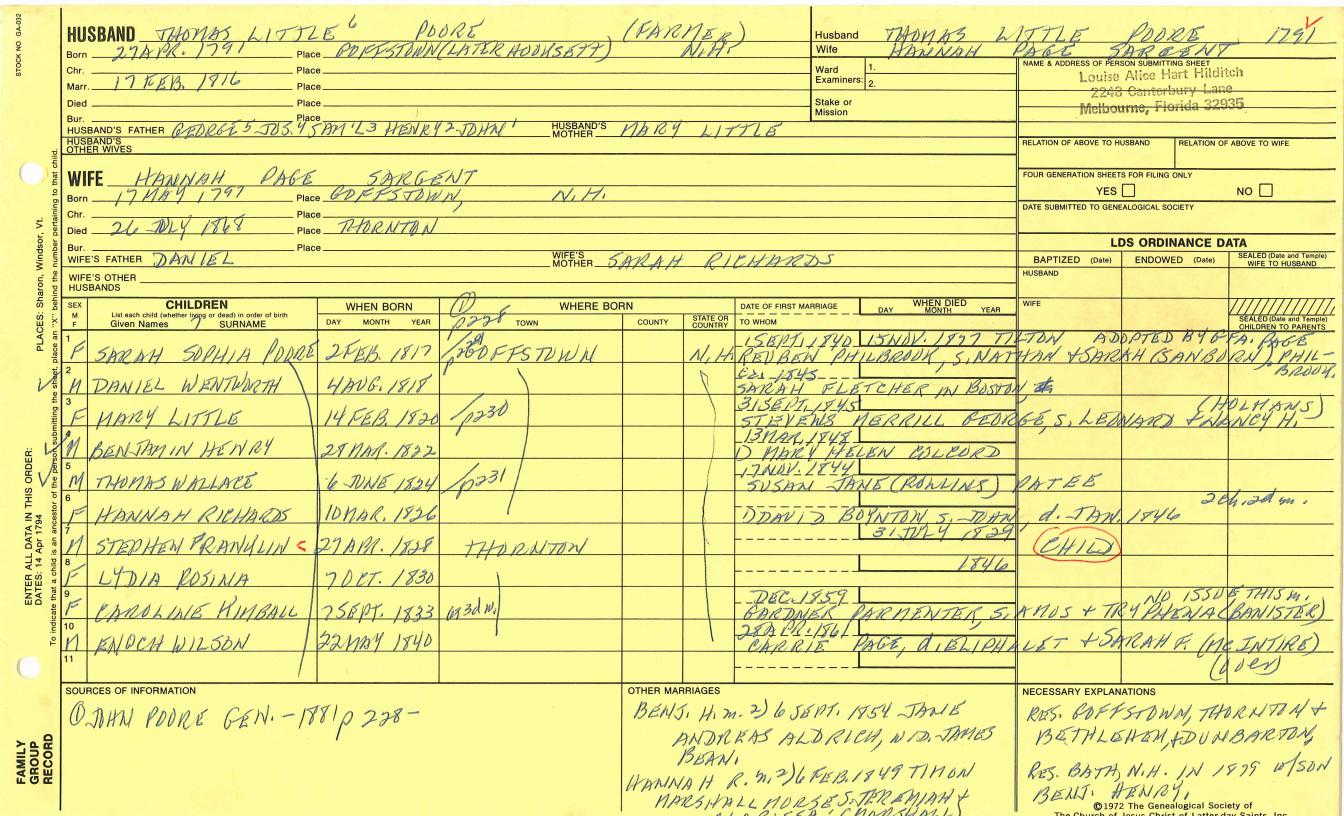 STOCK NO. GA-032
HUSBAND THOMAS LITTLE 6 POORE (FARMER)
Born 27 APR. 1791 Place GOFFSTOWN (LATER HOOKSETT) N.H.
Chr. Place
Marr. 17 FEB. 1816 Place
Died Place
Bur. Place
HUSBAND'S FATHER GEORGE 5 JOS. 4 SAM'L 3 HENRY 2 JOHN 1 HUSBAND'S MOTHER MARY LITTLE
HUSBAND'S OTHER WIVES
Husband THOMAS LITTLE POORE 1791
Wife HANNAH PAGE SARGENT
Ward Examiners: 1. 2.
Stake or Mission
NAME & ADDRESS OF PERSON SUBMITTING SHEET
Louise Alice Hart Hilditch
2248 Canterbury Lane
Melbourne, Florida 32935
RELATION OF ABOVE TO HUSBAND RELATION OF ABOVE TO WIFE
FOUR GENERATION SHEETS FOR FILING ONLY
YES NO
DATE SUBMITTED TO GENEALOGICAL SOCIETY
WIFE HANNAH PAGE SARGENT
Born 17 MAY 1797 Place GOFFSTOWN, N.H.
Chr. Place
Died 26 JULY 1868 Place THORNTON
Bur. Place
WIFE'S FATHER DANIEL WIFE'S MOTHER SARAH RICHARDS
WIFE'S OTHER HUSBANDS
LDS ORDINANCE DATA
BAPTIZED (Date) ENDOWED (Date) SEALED (Date and Temple) WIFE TO HUSBAND
HUSBAND
WIFE
SEALED (Date and Temple) CHILDREN TO PARENTS
SEX M F CHILDREN WHEN BORN WHERE BORN DATE OF FIRST MARRIAGE WHEN DIED
List each child (whether living or dead) in order of birth
Given Names 7 SURNAME DAY MONTH YEAR TOWN COUNTY STATE OR COUNTRY TO WHOM DAY MONTH YEAR
① p228
1 F SARAH SOPHIA POORE 2 FEB. 1817 GOFFSTOWN N.H. 1 SEPT. 1840 15 NOV. 1877 TILTON ADOPTED BY GFA. PAGE
REUBEN PHILBROOK, S. NATHAN + SARAH (SANBORN) PHILBROOK
2 M DANIEL WENTWORTH 4 AUG. 1818 ca. 1845
SARAH FLETCHER IN BOSTON
3 F MARY LITTLE 14 FEB. 1820 p230 31 SEPT. 1845 (HOLMANS)
STEVENS MERRILL GEORGE, S. LEONARD + NANCY H.
4 M BENJAMIN HENRY 28 MAR. 1822 13 MAR. 1848
1) MARY HELEN COLCORD
5 M THOMAS WALLACE 6 JUNE 1824 p231 17 NOV. 1844
SUSAN JANE (ROLLINS) PATEE
6 F HANNAH RICHARDS 10 MAR. 1826 1) DAVID BOYNTON S. JOHN, d. JAN. 1846 2ch. 2d m.
7 M STEPHEN FRANKLIN 27 APR. 1828 THORNTON 31 JULY 1829 CHILD
8 F LYDIA ROSINA 7 OCT. 1830 1846
9 F CAROLINE KIMBALL 7 SEPT. 1833 as 3d w. DEC. 1859 NO ISSUE THIS m.
GARDNER PARMENTER, S. AMOS + TRYPHENA (BANISTER)
10 M ENOCH WILSON 22 MAY 1840 28 APR. 1861
CARRIE PAGE, d. ELIPHALET + SARAH F. (McINTIRE)
11 (over)
SOURCES OF INFORMATION
① JOHN POORE GEN. - 1881 p 228 -
OTHER MARRIAGES
BENJ. H. m. 2) 6 SEPT. 1854 JANE
ANDREAS ALDRICH, WID. JAMES
BEAN.
HANNAH R. m. 2) 6 FEB. 1849 TIMON
MARSHALL MORSE S. JEREMIAH +
NECESSARY EXPLANATIONS
RES. GOFFSTOWN, THORNTON +
BETHLEHEM, + DUNBARTON,
RES. BATH, N.H. IN 1879 w/SON
BENJ. HENRY.
©1972 The Genealogical Society of
The Church of Jesus Christ of Latter-day Saints, Inc.
PLACES: Sharon, Windsor, Vt.
ENTER ALL DATA IN THIS ORDER:
DATES: 14 Apr 1794
To indicate that a child is an ancestor of the person submitting the sheet, place an "X" behind the number pertaining to that child.
FAMILY GROUP RECORD